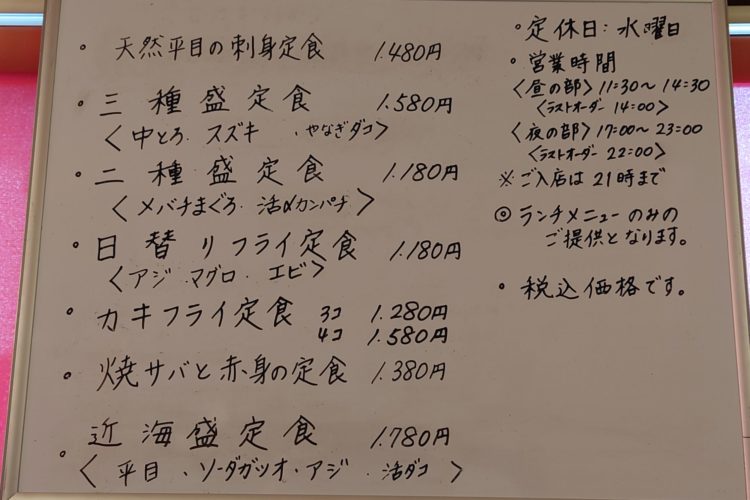 ・天然平目の刺身定食 1.480円
・三種盛定食 1.580円
〈中とろ.スズキ 、やなぎダコ〉
・二種盛定食 1.180円
〈メバチまぐろ.活〆カンパチ〉
・日替りフライ定食 1.180円
〈アジ.マグロ.エビ〉
・カキフライ定食 3コ 1.280円
4コ 1.580円
・焼サバと赤身の定食 1.380円
・近海盛定食 1.780円
〈平目、ソーダガツオ・アジ.活ダコ〉
・定休日:水曜日
・営業時間
〈昼の部〉11:30〜14:30
〈ラストオーダー 14:00〉
〈夜の部〉17:00〜23:00
〈ラストオーダー 22:00〉
※ご入店は21時まで
◎ランチメニューのみの
ご提供となります。
・税込価格です。